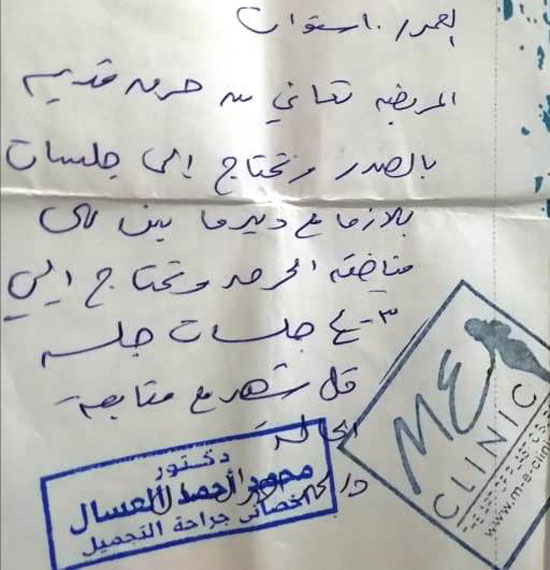 العمر ١٠ سنوات
المريضه تعاني من حروق قديمه
بالصدر وتحتاج الى جلسات
بلازما مع ديرما بين على
مناطق الحرق وتحتاج الي
٣-٤ جلسات جلسه
كل شهر مع متابعة
الحالة
دكتور
محمود أحمد العسال
أخصائي جراحة التجميل
ME
CLINIC